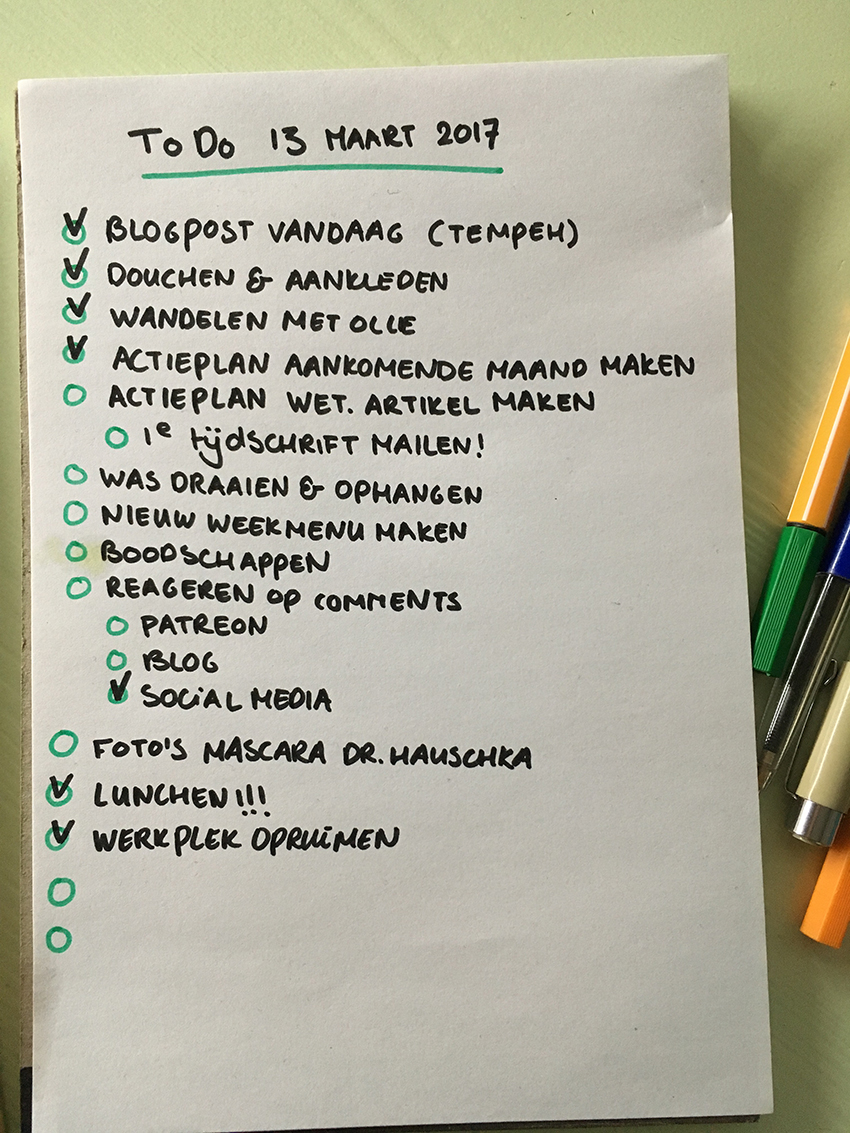 To Do 13 MAART 2017
BLOGPOST VANDAAG (TEMPEH)
DOUCHEN & AANKLEDEN
WANDELEN MET OLLE
ACTIEPLAN AANKOMENDE MAAND MAKEN
ACTIEPLAN WET. ARTIKEL MAKEN
1e tijdSCHRIFT MAILEN!
WAS DRAAIEN & OPHANGEN
NIEUW WEEKMENU MAKEN
BOODSCHAPPEN
REAGEREN OP COMMENTS
PATREON
BLOG
SOCiAL MEDIA
FOTO'S MASCARA DR. HAUSCHKA
LUNCHEN!!!
WERKPLEK OPRUiMEN